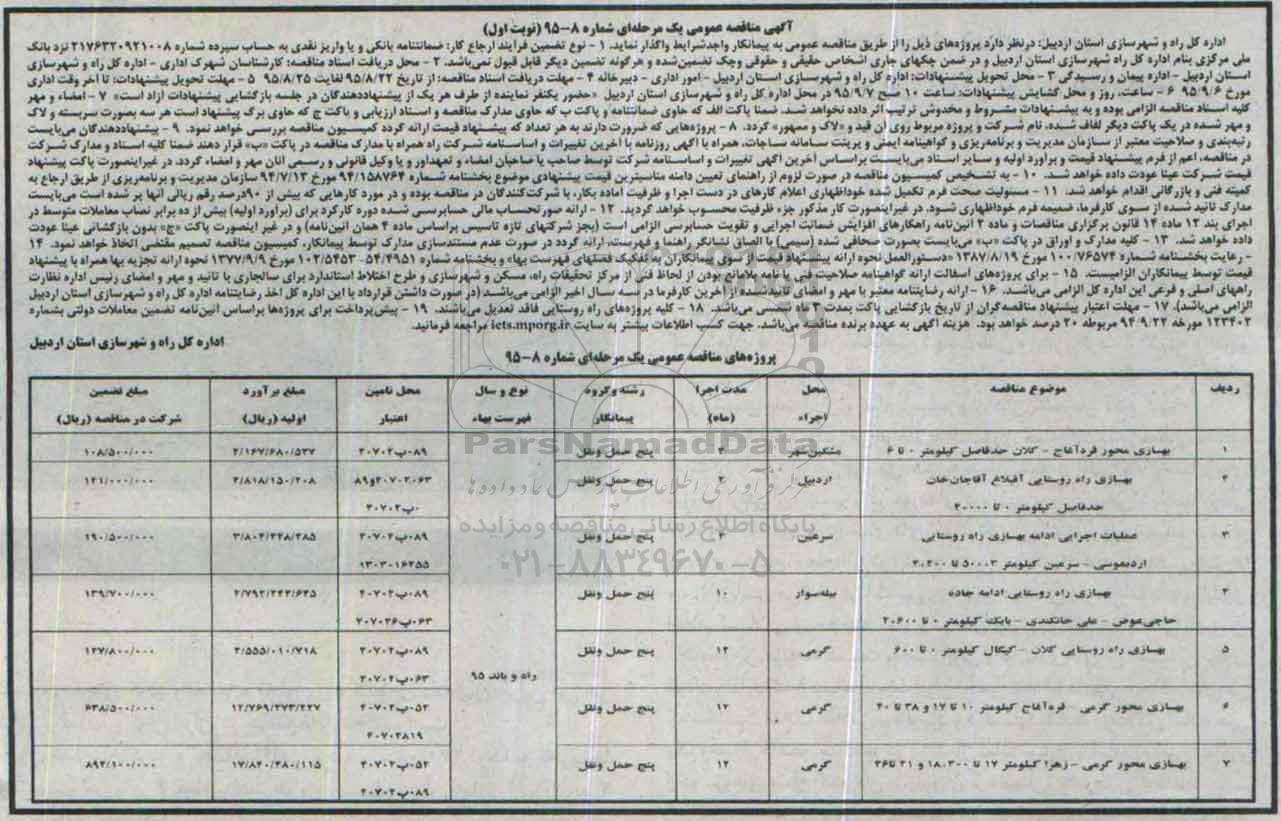 آگهی مناقصه عمومی یک مرحله‌ای شماره ۸-۹۵ (نوبت اول)
اداره کل راه و شهرسازی استان اردبیل: درنظر دارد پروژه‌های ذیل را از طریق مناقصه عمومی به پیمانکار واجدشرایط واگذار نماید. ۱ - نوع تضمین فرایند ارجاع کار: ضمانتنامه بانکی و یا واریز نقدی به حساب سپرده شماره ۲۱۷۶۳۲۰۹۲۱۰۰۸ نزد بانک
ملی مرکزی بنام اداره کل راه شهرسازی استان اردبیل و در ضمن چکهای جاری اشخاص حقیقی و حقوقی وچک تضمین‌شده و هرگونه تضمین دیگر قابل قبول نمی‌باشد. ۲ - محل دریافت اسناد مناقصه: کارشناسان شهرک اداری - اداره کل راه و شهرسازی
استان اردبیل - اداره پیمان و رسیدگی ۳ - محل تحویل پیشنهادات: اداره کل راه و شهرسازی استان اردبیل - امور اداری - دبیرخانه ۴ - مهلت دریافت اسناد مناقصه: از تاریخ ۹۵/۸/۲۲ لغایت ۹۵/۸/۲۵ ۵ - مهلت تحویل پیشنهادات: تا آخر وقت اداری
مورخ ۹۵/۹/۶ ۶ - ساعت، روز و محل گشایش پیشنهادات: ساعت ۱۰ صبح ۹۵/۹/۷ در محل اداره کل راه و شهرسازی استان اردبیل «حضور یکنفر نماینده از طرف هر یک از پیشنهاددهندگان در جلسه بازگشایی پیشنهادات آزاد است» ۷ - امضاء و مهر
کلیه اسناد مناقصه الزامی بوده و به پیشنهادات مشروط و مخدوش ترتیب اثر داده نخواهد شد. ضمنا پاکت الف که حاوی ضمانتنامه و پاکت ب که حاوی مدارک مناقصه و اسناد ارزیابی و پاکت ج که حاوی برگ پیشنهاد است هر سه بصورت سربسته و لاک
و مهر شده در یک پاکت دیگر لفاف شده، نام شرکت و پروژه مربوط روی آن قید و «لاک و ممهور» گردد. ۸ - پروژه‌هایی که ضرورت دارند به هر تعداد که پیشنهاد قیمت ارائه گردد کمیسیون مناقصه بررسی خواهد نمود. ۹ - پیشنهاددهندگان می‌بایست
رتبه‌بندی و صلاحیت معتبر از سازمان مدیریت و برنامه‌ریزی و گواهینامه ایمنی و پرینت سامانه ساجات، همراه با آگهی روزنامه با آخرین تغییرات و اساسنامه شرکت راه همراه با مدارک مناقصه در پاکت «ب» قرار دهند ضمنا کلیه اسناد و مدارک شرکت
در مناقصه، اعم از فرم پیشنهاد قیمت و برآورد اولیه و سایر اسناد می‌بایست براساس آخرین آگهی تغییرات و اساسنامه شرکت توسط صاحب یا صاحبان امضاء و تعهدآور و یا وکیل قانونی و رسمی آنان مهر و امضاء گردد. در غیراینصورت پاکت پیشنهاد
قیمت شرکت عینا عودت داده خواهد شد. ۱۰ - به تشخیص کمیسیون مناقصه در صورت لزوم از راهنمای تعیین دامنه مناسبترین قیمت پیشنهادی موضوع بخشنامه شماره ۹۴/۱۵۸۷۶۴ مورخ ۹۴/۷/۱۳ سازمان مدیریت و برنامه‌ریزی از طریق ارجاع به
کمیته فنی و بازرگانی اقدام خواهد شد. ۱۱ - مسئولیت صحت فرم تکمیل شده خوداظهاری اعلام کارهای در دست اجرا و ظرفیت آماده بکار، با شرکت‌کنندگان در مناقصه بوده و در مورد کارهایی که بیش از ۹۰درصد رقم ریالی آنها پر شده است می‌بایست
مدارک تائید شده از سوی کارفرما، ضمیمه فرم خوداظهاری شود. در غیراینصورت کار مذکور جزء ظرفیت محسوب خواهد گردید. ۱۲ - ارائه صورتحساب مالی حسابرسی شده دوره کارکرد برای (برآورد اولیه) بیش از ده برابر نصاب معاملات متوسط در
اجرای بند ۱۲ ماده ۱۴ قانون برگزاری مناقصات و ماده ۲ آئین‌نامه راهکارهای افزایش ضمانت اجرایی و تقویت حسابرسی الزامی است (بجز شرکتهای تازه تاسیس براساس ماده ۴ همان آئین‌نامه) و در غیر اینصورت پاکت «ج» بدون بازگشائی عینا عودت
داده خواهد شد. ۱۳ - کلیه مدارک و اوراق در پاکت «ب» می‌بایست بصورت صحافی شده (سیمی) با الصاق نشانگر راهنما و فهرست، ارائه گردد در صورت عدم مستندسازی مدارک توسط پیمانکار، کمیسیون مناقصه تصمیم مقتضی اتخاذ خواهد نمود. ۱۴
- رعایت بخشنامه شماره ۱۰۰/۷۶۵۷۴ مورخ ۱۳۸۷/۸/۱۹ «دستورالعمل نحوه ارائه پیشنهاد قیمت از سوی پیمانکاران به تفکیک فصلهای فهرست بها» و بخشنامه شماره ۵۴/۴۹۵۱-۱۰۲/۵۴۵۳ مورخ ۱۳۷۷/۹/۹ نحوه ارائه تجزیه بها همراه با پیشنهاد
قیمت توسط پیمانکاران الزامیست. ۱۵ - برای پروژه‌های آسفالت ارائه گواهینامه صلاحیت فنی یا نامه بلامانع بودن از لحاظ فنی از مرکز تحقیقات راه، مسکن و شهرسازی و طرح اختلاط استاندارد برای سالجاری با تائید و مهر و امضای رئیس اداره نظارت
راههای اصلی و فرعی این اداره کل الزامی می‌باشد. ۱۶ - ارائه رضایتنامه معتبر با مهر و امضای تائیدشده از آخرین کارفرما در سه سال اخیر الزامی می‌باشد (در صورت داشتن قرارداد با این اداره کل اخذ رضایتنامه اداره کل راه و شهرسازی استان اردبیل
الزامی می‌باشد) ۱۷ - مهلت اعتبار پیشنهاد مناقصه‌گران از تاریخ بازگشایی پاکت بمدت ۳ ماه شمسی می‌باشد. ۱۸ - کلیه پروژه‌های راه روستایی فاقد تعدیل می‌باشند. ۱۹ - پیش‌پرداخت برای پروژه‌ها براساس آئین‌نامه تضمین معاملات دولتی بشماره
۱۲۳۴۰۲ مورخه ۹۴/۹/۲۲ مربوطه ۲۰ درصد خواهد بود. هزینه آگهی به عهده برنده مناقصه می‌باشد. جهت کسب اطلاعات بیشتر به سایت iets.mporg.ir مراجعه فرمائید.
اداره کل راه و شهرسازی استان اردبیل
پروژه‌های مناقصه عمومی یک مرحله‌ای شماره ۸-۹۵
ردیف موضوع مناقصه محل اجراء مدت اجرا (ماه) رشته وگروه پیمانکار نوع و سال فهرست بهاء محل تامین اعتبار مبلغ برآورد اولیه (ریال) مبلغ تضمین شرکت در مناقصه (ریال)
۱ بهسازی محور قره‌آغاج - کلان حدفاصل کیلومتر ۰ تا ۶ مشکین‌شهر پنج حمل ونقل ۲/۱۶۷/۶۸۰/۵۳۷ ۱۰۸/۵۰۰/۰۰۰
۲ بهسازی راه روستایی آقبلاغ آقاجان‌خان اردبیل پنج حمل ونقل ۲/۸۱۸/۱۵۰/۲۰۸ ۱۴۱/۰۰۰/۰۰۰
حدفاصل کیلومتر ۰ تا ۲۰۰۰۰
۳ عملیات اجرایی ادامه بهسازی راه روستایی سرعین پنج حمل ونقل ۳/۸۰۴/۳۴۸/۲۸۵ ۱۹۰/۵۰۰/۰۰۰
اردیموسی - سرعین
۴ بهسازی راه روستایی ادامه جاده بیله‌سوار ۱۰ پنج حمل ونقل ۲/۷۹۲/۲۴۲/۶۴۵ ۱۳۹/۷۰۰/۰۰۰
حاجی‌عوض - علی خانکندی - بابک
۵ بهسازی راه روستایی کلان - کیکال کیلومتر ۰ تا ۶۰۰ گرمی ۱۲ پنج حمل ونقل راه و باند ۹۵ ۲/۵۵۵/۰۱۰/۷۱۸ ۱۲۷/۸۰۰/۰۰۰
۶ بهسازی محور گرمی - قره‌آغاج کیلومتر ۱۰ تا ۱۷ و ۳۸ تا ۴۰ گرمی ۱۲ پنج حمل ونقل ۱۲/۷۶۹/۲۷۳/۲۲۷ ۶۳۸/۵۰۰/۰۰۰
۷ بهسازی محور گرمی - زهرا کیلومتر ۱۷ تا ۱۸.۳۰۰ و ۲۱ تا ۲۶ گرمی ۱۲ پنج حمل ونقل ۱۷/۸۴۰/۲۸۰/۱۱۵ ۸۹۲/۱۰۰/۰۰۰
ParsNamadData
پایگاه اطلاع رسانی مناقصه و مزایده
۰۲۱-۸۸۳۴۹۶۷۰-۵